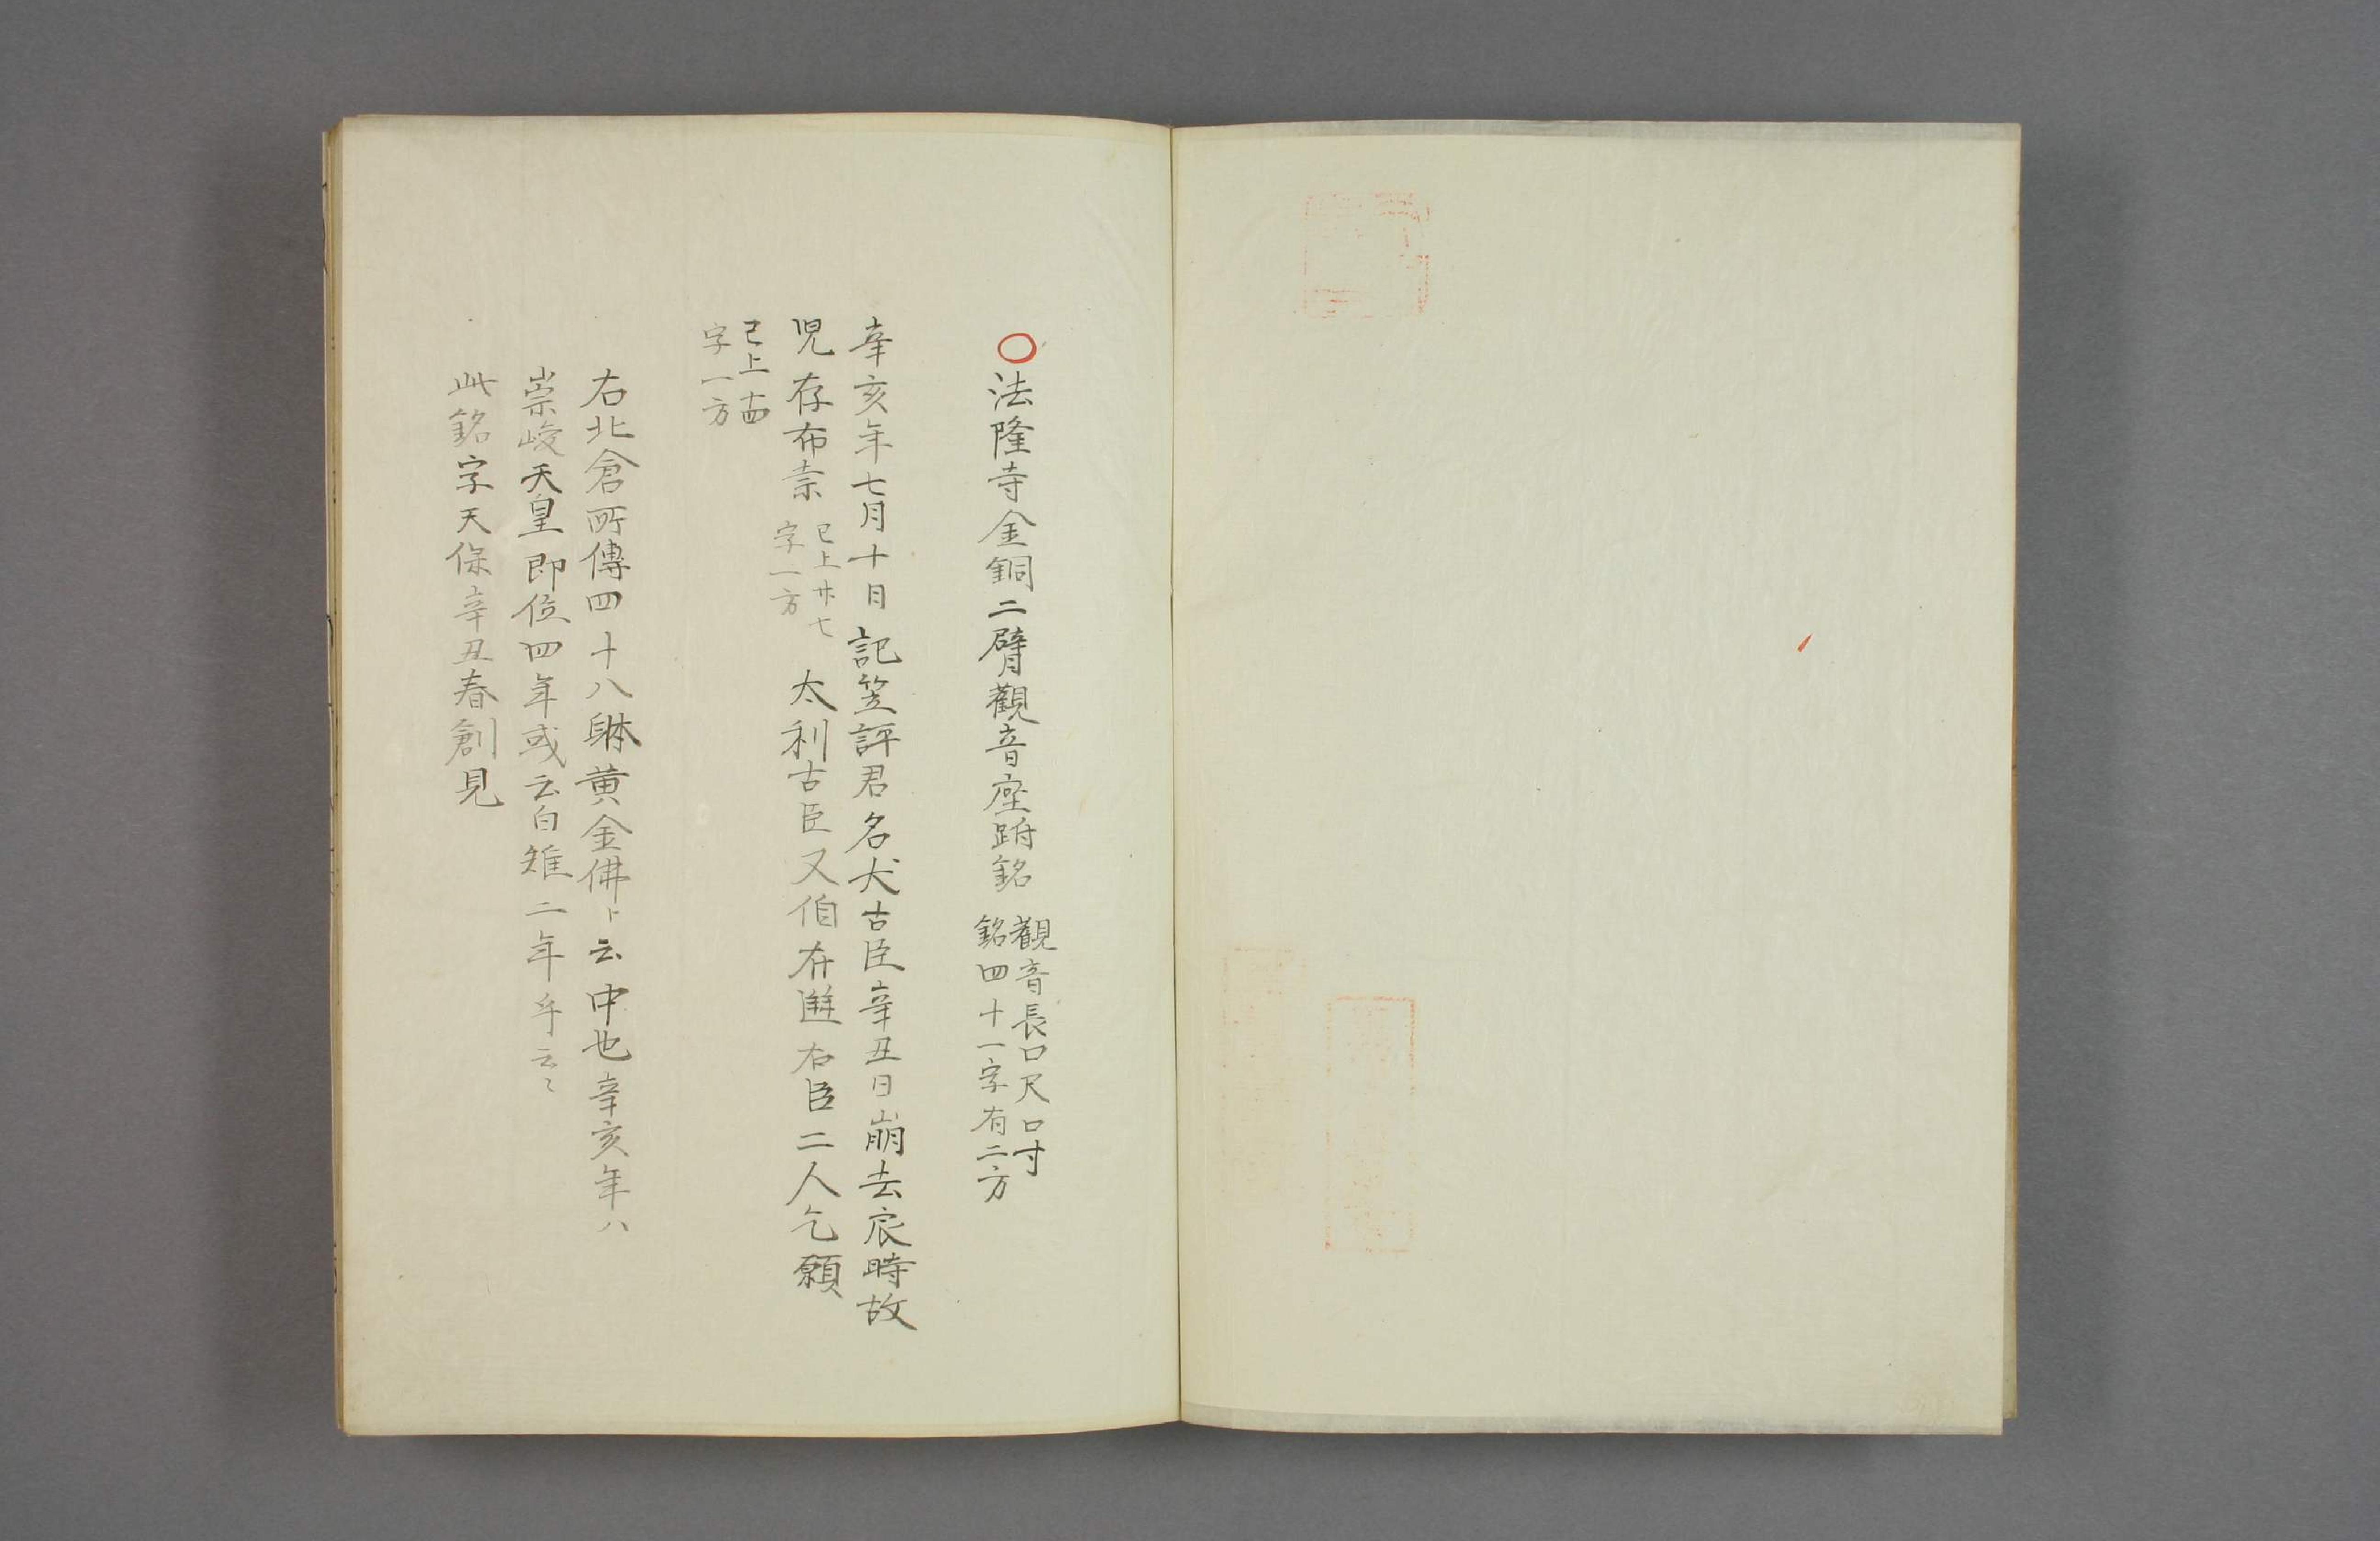 〇法隆寺金銅二臂觀音座跗銘
觀音長口尺口寸
銘四十一字有二方
辛亥年七月十日記笠評君名大古臣辛丑日崩去辰時故
児在布奈
已上廿七
字一方
太利古臣又伯在建古臣二人乞願
已上十四
字一方
右北倉所傳四十八躰黄金佛ト云中也辛亥年ハ
崇峻天皇即位四年或云白雉二年乎云〻
此銘字天保辛丑春創見